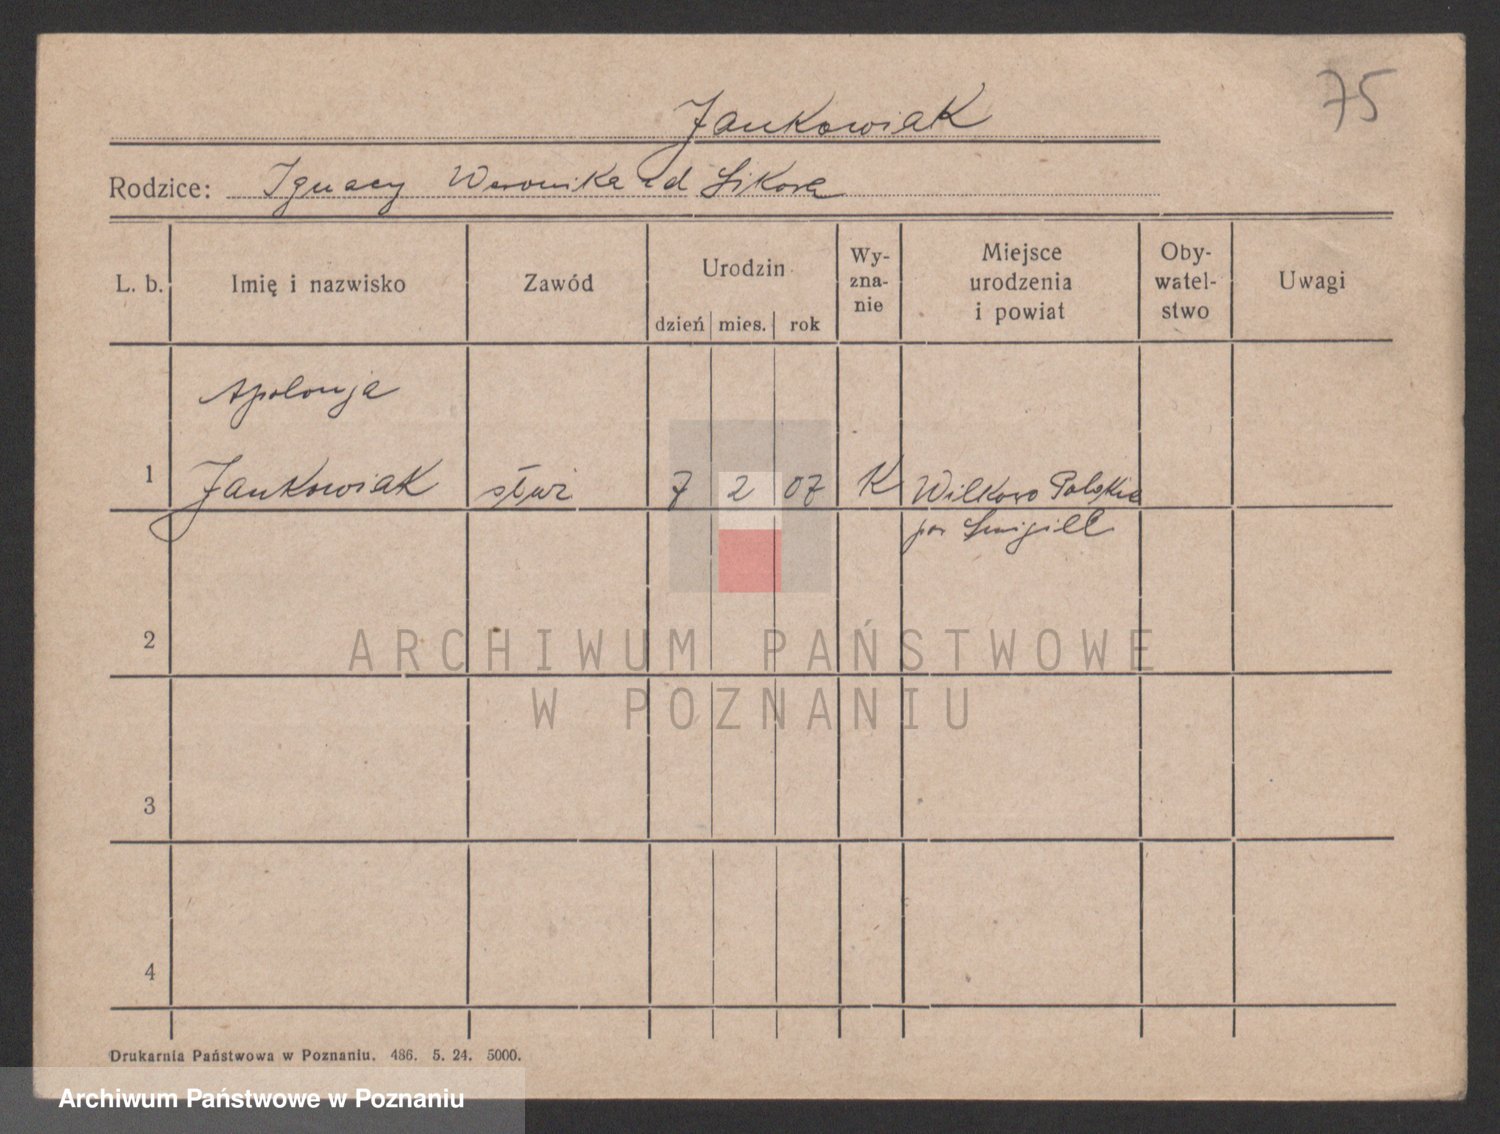 75
Jankowiak
Rodzice: Ignacy Weronika zd Sikora
L. b. Imię i nazwisko Zawód Urodzin dzień mies. rok Wy-zna-nie Miejsce urodzenia i powiat Oby-watel-stwo Uwagi
Apolonja
1 Jankowiak służ 7 2 07 K Wilkowo Polskie
pow Smigiel
2
ARCHIWUM PAŃSTWOWE
W POZNANIU
3
4
Drukarnia Państwowa w Poznaniu. 486. 5. 24. 5000.
Archiwum Państwowe w Poznaniu